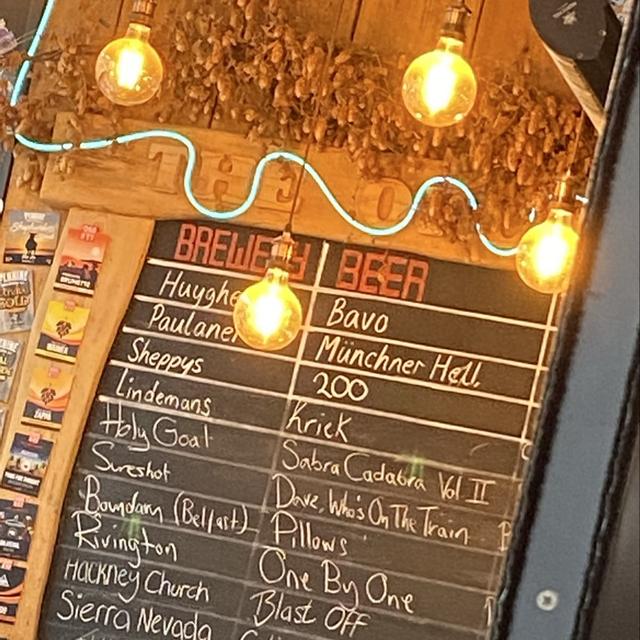 THE
BREWERY BEER
Huyghe Bavo
Paulaner Münchner Hell
Sheppys 200
Lindemans Kriek
Holy Goat Sabra Cadabra Vol II
Sureshot Dave, Who's On The Train
Boundary (Belfast) Pillows
Rivington One By One
HACKNEY CHURCH Blast Off
Sierra Nevada